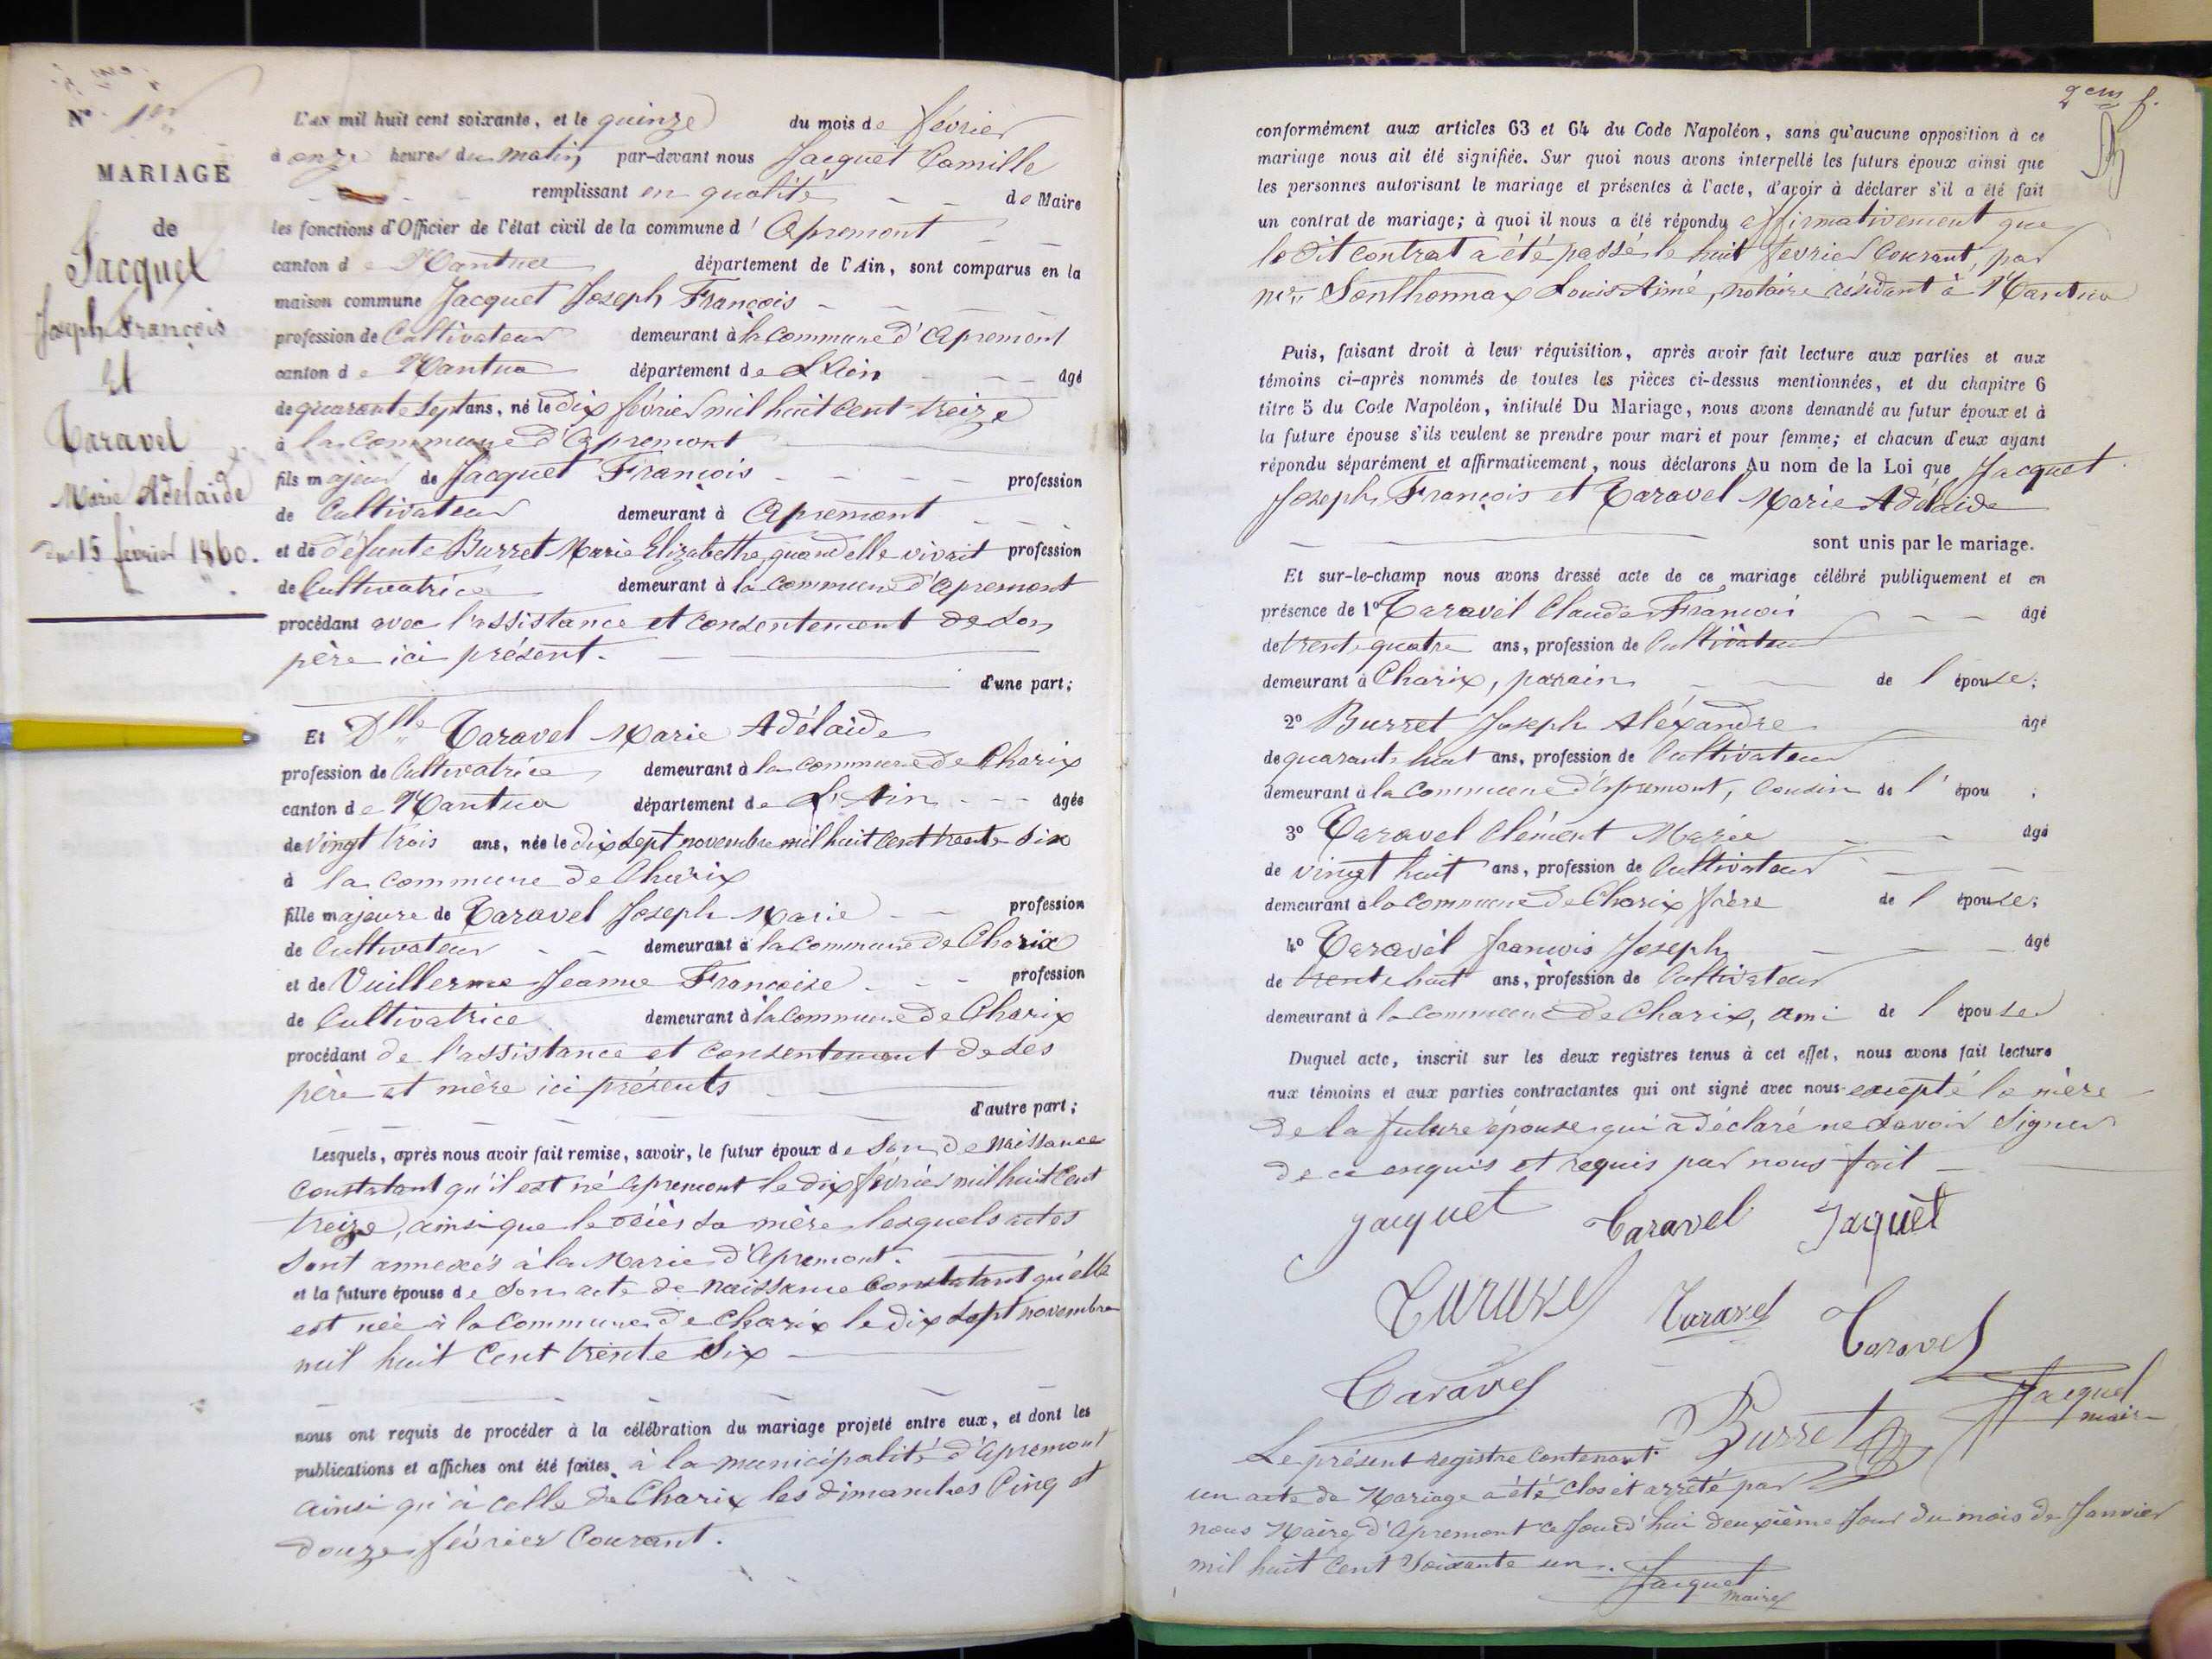 N° 1er
MARIAGE
de
Jacquet
Joseph François
et
Taravel
Marie Adélaïde
du 15 février 1860.
L'AN mil huit cent soixante, et le quinze du mois de février
à onze heures du matin par-devant nous Jacquet Camille
remplissant en qualité de Maire
les fonctions d'Officier de l'état civil de la commune d' Apremont
canton de Nantua département de l'Ain, sont comparus en la
maison commune Jacquet Joseph François
profession de Cultivateur demeurant à la commune d'Apremont
canton de Nantua département de L'Ain âgé
de quarante sept ans, né le dix février mil huit cent treize
à la commune d'Apremont
fils majeur de Jacquet François profession
de Cultivateur demeurant à Apremont
et de défunte Burret Marie Elizabethe, quand elle vivait profession
de Cultivatrice demeurant à la commune d'Apremont
procédant avec l'assistance et consentement de son
père ici présent.
d'une part;
Et Dlle Taravel Marie Adélaïde
profession de Cultivatrice demeurant à la commune de Charix
canton de Nantua département de L'Ain âgée
de vingt trois ans, née le dix sept novembre mil huit cent trente six
à la commune de Charix
fille majeure de Taravel Joseph Marie profession
de Cultivateur demeurant à la commune de Charix
et de Vuillerme Jeanne Françoise profession
de Cultivatrice demeurant à la commune de Charix
procédant de l'assistance et consentement de ses
père et mère ici présents
d'autre part;
Lesquels, après nous avoir fait remise, savoir, le futur époux de son de naissance
constatant qu'il est né apremont le dix février mil huit cent
treize, ainsi que le décès sa mère lesquels actes
sont annexés à la Marie d'Apremont.
et la future épouse de son acte de naissance constatant qu'elle
est née à la commune de Charix le dix sept novembre
mil huit cent trente six
nous ont requis de procéder à la célébration du mariage projeté entre eux, et dont les
publications et affiches ont été faites à la municipalité d'Apremont
ainsi qu'à celle de Charix les dimanches cinq et
douze février courant.
2em f.
conformément aux articles 63 et 64 du Code Napoléon, sans qu'aucune opposition à ce
mariage nous ait été signifiée. Sur quoi nous avons interpellé les futurs époux ainsi que
les personnes autorisant le mariage et présentes à l'acte, d'avoir à déclarer s'il a été fait
un contrat de mariage; à quoi il nous a été répondu affirmativement que
le dit contrat a été passé le huit février courant, par
me Sonthonnax Louis Aimé, notaire résidant à Nantua
Puis, faisant droit à leur réquisition, après avoir fait lecture aux parties et aux
témoins ci-après nommés de toutes les pièces ci-dessus mentionnées, et du chapitre 6
titre 5 du Code Napoléon, intitulé Du Mariage, nous avons demandé au futur époux et à
la future épouse s'ils veulent se prendre pour mari et pour femme; et chacun d'eux ayant
répondu séparément et affirmativement, nous déclarons Au nom de la Loi que Jacquet
Joseph François et Taravel Marie Adélaïde
sont unis par le mariage.
Et sur-le-champ nous avons dressé acte de ce mariage célébré publiquement et en
présence de 1° Taravel Claude François âgé
de trente quatre ans, profession de Cultivateur
demeurant à Charix, parain de l épouse;
2° Burret Joseph Aléxandre âgé
de quarante huit ans, profession de Cultivateur
demeurant à la commune d'Apremont, cousin de l' épou ;
3° Taravel Clément Marie âgé
de vingt huit ans, profession de Cultivateur
demeurant à la commune de Charix frère de l épouse;
4° Taravel françois Joseph âgé
de trente huit ans, profession de Cultivateur
demeurant à la commune de Charix, ami de l épouse
Duquel acte, inscrit sur les deux registres tenus à cet effet, nous avons fait lecture
aux témoins et aux parties contractantes qui ont signé avec nous excepté la mère
de la future épouse qui a déclaré ne savoir signer
de ce enquis et requis par nous fait
Jacquet Taravel Jaquet
Taravel Taravel Taravel
Taravel Burret Jacquet
maire
Le présent registre contenant
un acte de Mariage a été clos et arrêté par
nous Maire d'Apremont ce jourd'hui deuxième jour du mois de Janvier
mil huit cent soixante un. Jacquet
maire